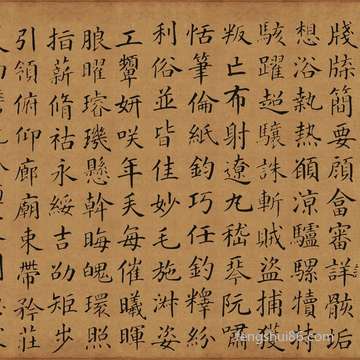 牋牒簡要顧畣審詳骸垢
想浴執熱願涼驢騾犢特
駭躍超驤誅斬賊盜捕獲
叛亡布射遼丸嵇琴阮嘯
恬筆倫紙鈞巧任釣釋紛
利俗並皆佳妙毛施淑姿
工顰妍咲年矢每催曦暉
朗曜璿璣懸斡晦魄環照
指薪脩祜永綏吉劭矩步
引領俯仰廊廟束帶矜莊
fengshui86.com